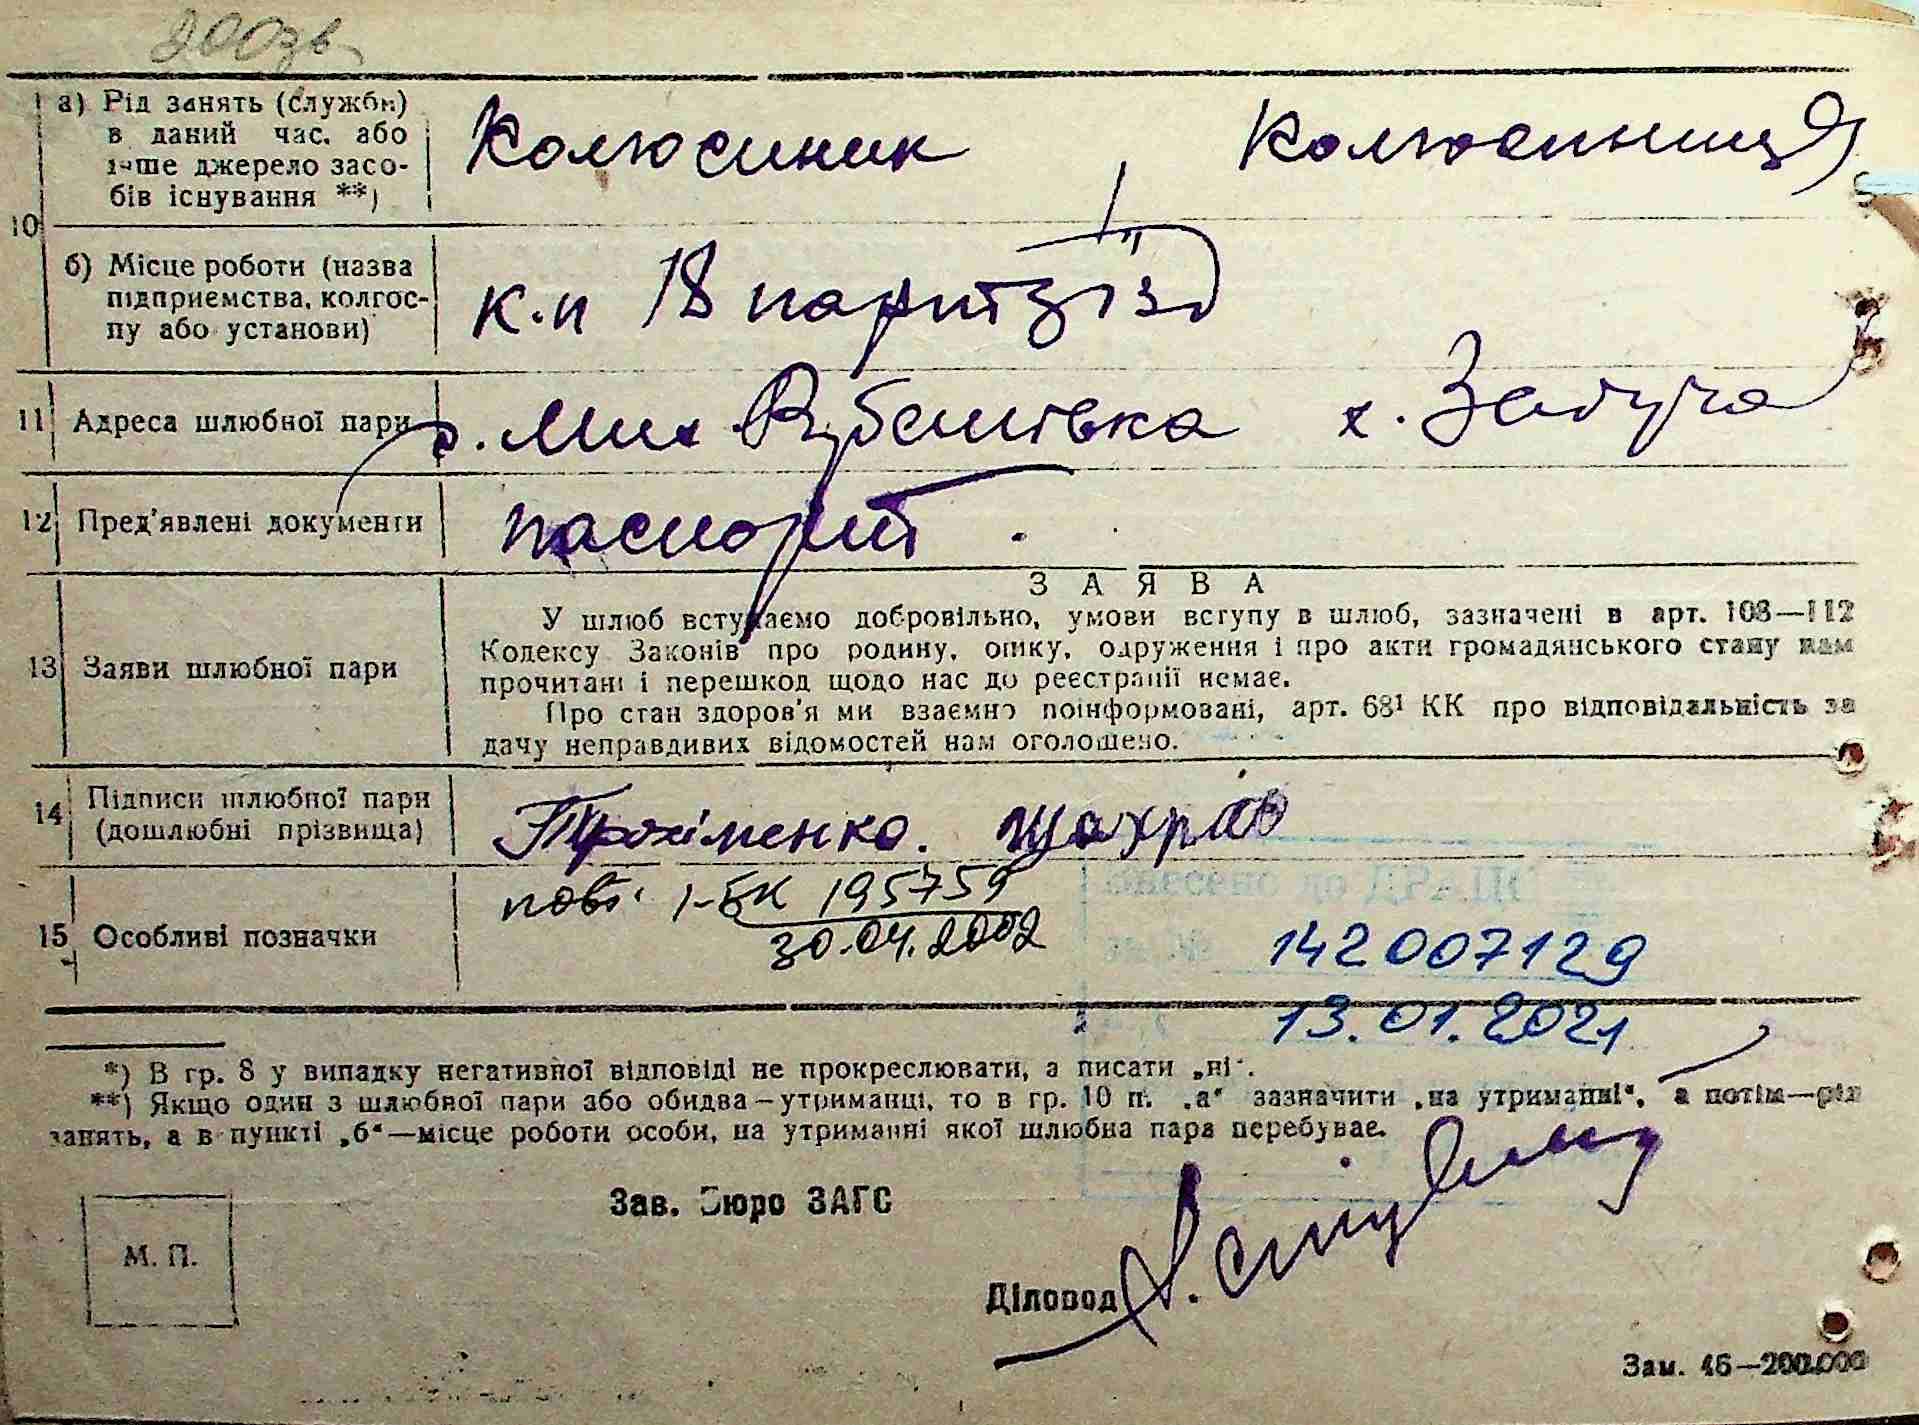 200зв
10 а) Рід занять (служби) в даний час, або інше джерело засобів існування **) Колгоспник Колгоспниця
б) Місце роботи (назва підприємства, колгоспу або установи) к.п 18 партз'їзд
11 Адреса шлюбної пари с. Мих Рубанівка х.
12 Пред'явлені документи паспорт.
З А Я В А
У шлюб вступаємо добровільно, умови вступу в шлюб, зазначені в арт. 108—112
13 Заяви шлюбної пари Кодексу Законів про родину, опіку, одруження і про акти громадянського стану нам
прочитані і перешкод щодо нас до реєстрації немає.
Про стан здоров'я ми взаємно поінформовані, арт. 68¹ КК про відповідальність за
дачу неправдивих відомостей нам оголошено.
14 Підписи шлюбної пари (дошлюбні прізвища) Трохіменко. Шахрай
15 Особливі позначки повт. І-БК 195759
30.04.2002
Внесено до ДРАЦС
за № 142007129
13.01.2021
*) В гр. 8 у випадку негативної відповіді не прокреслювати, а писати „ні“.
**) Якщо один з шлюбної пари або обидва — утриманці, то в гр. 10 п. „а“ зазначити „на утриманні“, а потім—рід
занять, а в пункті „б“—місце роботи особи, на утриманні якої шлюбна пара перебуває.
Зав. Бюро ЗАГС
М. П.
Діловод
Зам. 46—200.000